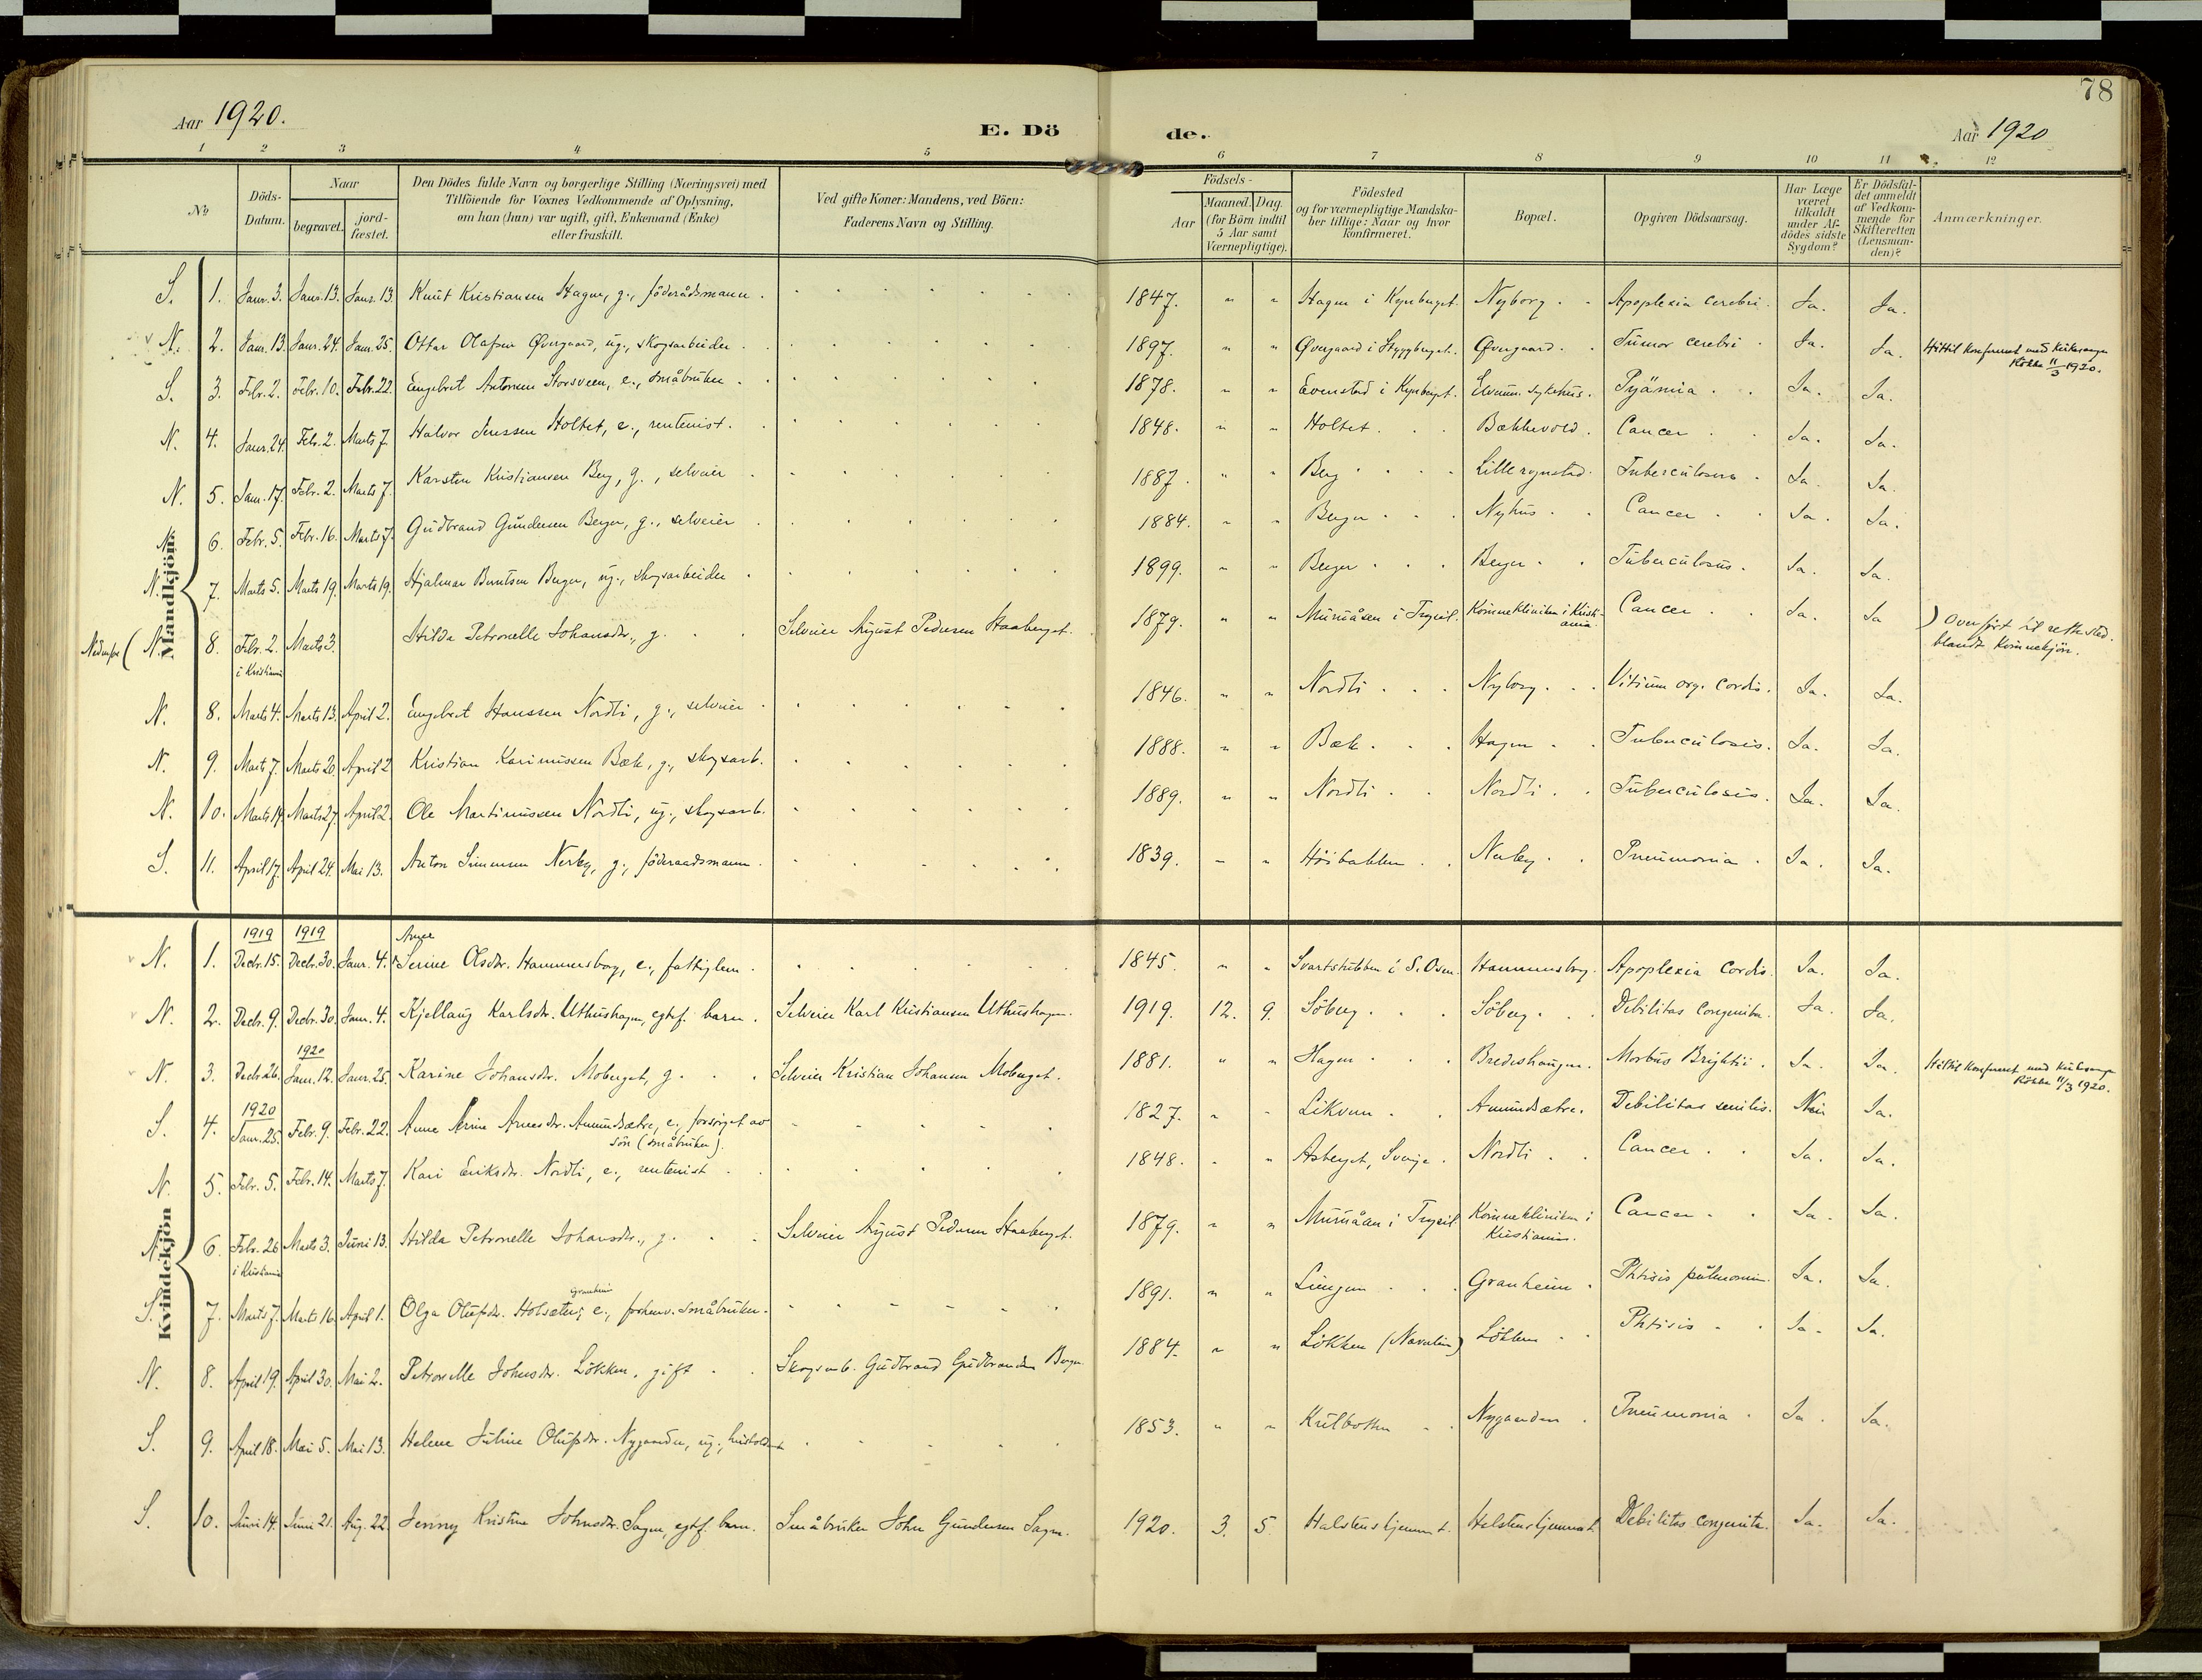 78
Aar 1920.
E. Döde.
Aar 1920
1 2 3 4 5 6 7 8 9 10 11 12
No
Döds-Datum.
Naar
begravet.
jord-fæstet.
Den Dödes fulde Navn og borgerlige Stilling (Næringsvei) med
Tilföiende for Voxnes Vedkommende af Oplysning,
om han (hun) var ugift, gift, Enkemand (Enke)
eller fraskilt.
Ved gifte Koner: Mandens, ved Börn:
Faderens Navn og Stilling.
Födsels-
Aar
Maaned. Dag.
(for Börn indtil
5 Aar samt
Værnepligtige).
Födested
og for værnepligtige Mandska-
ber tillige: Naar og hvor
konfirmeret.
Bopæl.
Opgiven Dödsaarsag.
Har Læge
været
tilkaldt
under Af-
dödes sidste
Sygdom?
Er Dödsfal-
det anmeldt
af Vedkom-
mende for
Skifteretten
(Lensman-
den)?
Anmærkninger.
Mandkjön.
S. 1. Janr. 3. Janr. 13. Janr. 13. Knut Kristiansen Hagen, g., föderådsmann. 1847. " " Hagen i Kynberget. Nyborg. Apoplexia cerebri. Ja. Ja.
N. 2. Janr. 13. Janr. 24. Janr. 25. Ottar Olafsen Øvergaard, ug., skogsarbeider. 1897. " " Øvergaard i Styggberget. Øvergaard. Tumor cerebri. Ja. Ja. Hittil konfereret med kirkesanger
Kökke 11/3 1920.
S. 3. Febr. 2. Febr. 10. Febr. 22. Engebret Antonsen Storsveen, e., småbruker. 1878. " " Evenstad i Kynberget. Elverum sykehus. Pyämia. Ja. Ja.
N. 4. Janr. 24. Febr. 2. Marts 7. Halvor Jenssen Holtet, e., rentenist. 1848. " " Holtet. Bækkevold. Cancer. Ja. Ja.
N. 5. Jan. 17. Febr. 2. Marts 7. Karsten Kristiansen Berg, g., selveier. 1887. " " Berg. Lillerognstad. Tuberculosis. Ja. Ja.
N. 6. Febr. 5. Febr. 16. Marts 7. Gudbrand Gundersen Berger, g., selveier. 1884. " " Berger. Nyhus. Cancer. Ja. Ja.
N. 7. Marts 5. Marts 19. Marts 19. Hjalmar Berntsen Berger, ug., skogsarbeider. 1899. " " Berger. Berger. Tuberculosis. Ja. Ja.
Nedenfor ( N. 8. Febr. 2. Marts 3. Hilda Petronelle Johansdr., g. Selveier August Pedersen Haaberget. 1879. " " Murmåsen i Trysil. Kvinneklinikken i Kristi-
ania. Cancer. Ja. Ja ) Overfört til rette sted.
i Kristiania blandt kvinnekjön.
N. 8. Marts 4. Marts 13. April 2. Engebret Hanssen Nordli, g., selveier. 1846. " " Nordli. Nyborg. Vitium org. cordis. Ja. Ja.
N. 9. Marts 7. Marts 20. April 2 Kristian Karinussen Bæk, g., skogsarb. 1888. " " Bæk. Hagen. Tuberculosis. Ja. Ja.
N. 10. Marts 14. Marts 27. April 2. Ole Martinussen Nordli, ug., skogsarb. 1889. " " Nordli. Nordli. Tuberculosis. Ja. Ja.
S. 11. April 17. April 24. Mai 13. Anton Simensen Nerby, g., föderaadsmann. 1839. " " Höibakken. Nerby. Pneumonia. Ja. Ja.
Kvindekjön
1919 1919
N. 1. Decbr. 15. Decbr. 30. Janr. 4. Serine Olsdr. Hammersborg, e., fattiglem. 1845. " " Svartstubben i S. Osen. Hammersborg. Apoplexia cordis. Ja. Ja.
N. 2. Decbr. 9. Decbr. 30. Janr. 4. Kjellaug Karlsdr. Uthushagen, egtef. barn. Selveier Karl Kristiansen Uthushagen. 1919. 12. 9. Söberg. Söberg. Debilitas congenita. Ja. Ja.
1920
N. 3. Decbr. 26. Janr. 12. Janr. 25. Karine Johansdr. Moberget, g. Selveier Kristian Johansen Moberget. 1881. " " Hagen. Bredeshaugen. Morbus Brightii. Ja. Ja. Hittil konfereret med kirkesanger
Kökke 11/3 1920.
1920
S. 4. Janr. 25. Febr. 9. Febr. 22. Anne Arnesdr. Amundsætre, e., forsörget av
sön (småbruker). 1827. " " Likvern. Amundsætre. Debilitas senilis. Nei Ja.
N. 5. Febr. 5. Febr. 14. Marts 7. Kari Eriksdr. Nordli, e., rentenist. 1848. " " Asberget, Sverige. Nordli. Cancer. Ja. Ja.
N. 6. Febr. 26 Marts 3. Juni 13. Hilda Petronelle Johansdr., g. Selveier August Pedersen Haaberget. 1879. " " Murmåsen i Trysil Kvinneklinikken i
Kristiania. Cancer. Ja. Ja.
i Kristiania
Granheim
S. 7. Marts 7. Marts 16. April 1. Olga Olufsdr. Holsæter, e., forhenv. småbruker. 1891. " " Granheim. Phtisis pulmonum. Ja. Ja.
N. 8. April 19. April 30. Mai 2. Petronelle Johnsdr. Lökken, gift. Skogsarb. Gudbrand Gudbrandsen Berger. 1884. " " Lökken (Navalien) Lökken. Phtisis. Ja. Ja.
S. 9. April 18. Mai 5. Mai 13. Helene Juline Olufsdr. Nygaarden, ug., 1853. " " Kulbotten. Nygaarden. Pneumonia. Ja. Ja.
S. 10. Juni 14. Juni 21. Aug. 22. Jenny Kristine Johnsdr. Sagen, egtf. barn. Småbruker John Gundersen Sagen. 1920. 3. 5. Halstenshjemmet. Halstenshjemmet. Debilitas congenita. Ja. Ja.